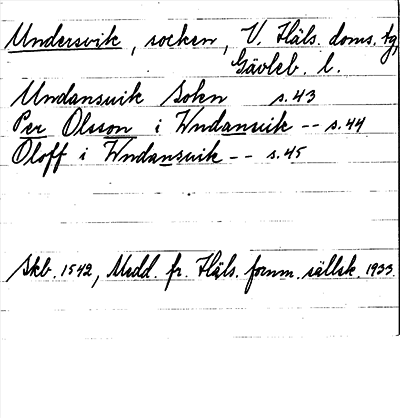 Undersvik, socken, V. Häls. doms. tg,
Gävleb. l.
Undansuik Soken s. 43
Per Olsson i Wndansuik -- s. 44
Oloff i Wndansuik -- s. 45
Skb. 1542, Medd. fr. Häls. fornm. sällsk. 1933.